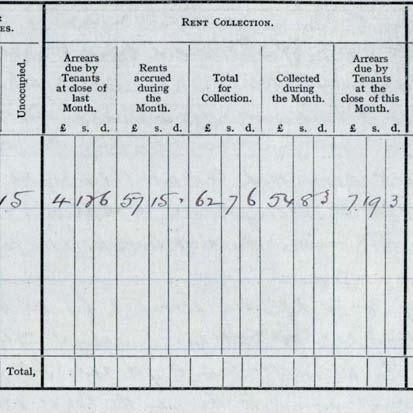 ES.
RENT COLLECTION.
Unoccupied.
Arrears
due by
Tenants
at close of
last
Month.
Rents
accrued
during
the
Month.
Total
for
Collection.
Collected
during
the Month.
Arrears
due by
Tenants
at the
close of this
Month.
£ s. d. £ s. d. £ s. d. £ s. d. £ s. d.
15 4 12 6 57 15 . 62 7 6 54 8 3 7 19 3
Total,